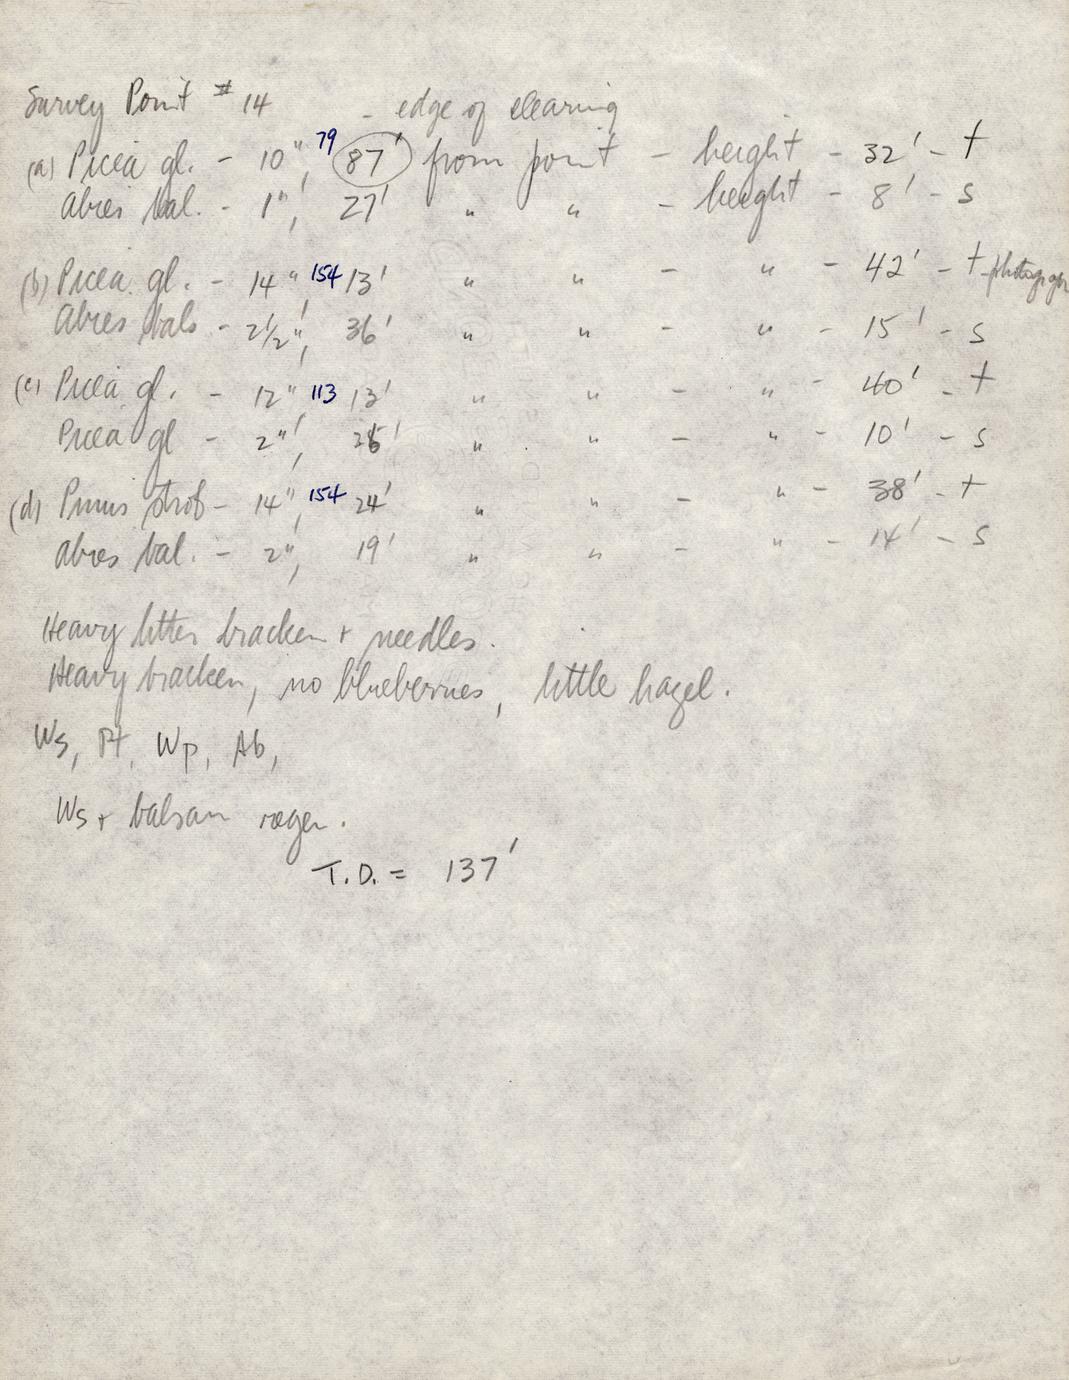 Survey Point # 14 - edge of clearing
(a) Picea gl. - 10", 79 87' from point - height - 32' - t
Abies bal. - 1", 27' " " - height - 8' - s
(b) Picea gl. - 14" 154 13' " " - " - 42' - t - photograph
Abies bals - 2 1/2", 36' " " - " - 15' - s
(c) Picea gl. - 12" 113 13' " " - " - 40' - t
Picea gl - 2", " " - " - 10' - s
(d) Pinus strob - 14", 154 24' " " - " - 38' - t
Abies bal. - 2", 19' " " - " - 14' - s
Heavy litter bracken + needles.
Heavy bracken, no blueberries, little hazel.
Ws, Pt, Wp, Ab,
Ws + balsam regen.
T.D. = 137'